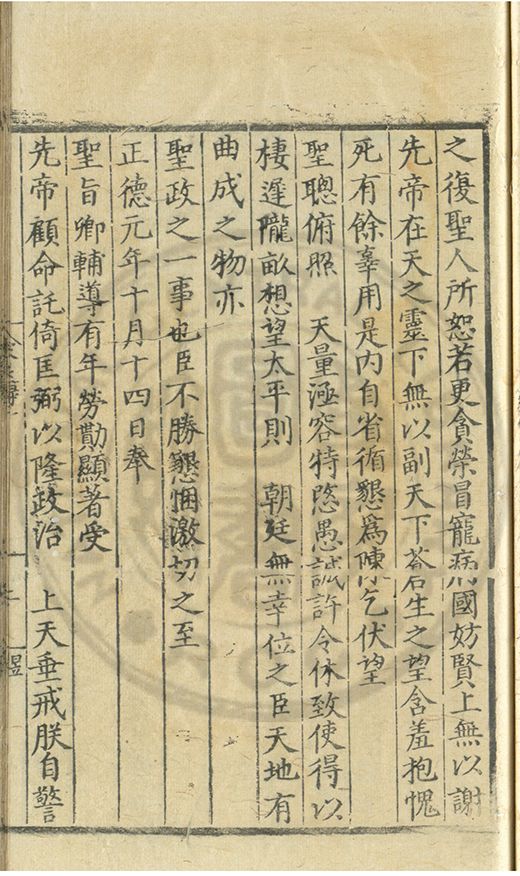 之復聖人所恕若更貪榮冒寵病國妨賢上無以謝
先帝在天之靈下無以副天下蒼生之望含羞抱愧
死有餘辜用是內自省循懇為陳乞伏望
聖聰俯照　天量涵容特愍愚誠許令休致使得以
棲遲隴畝想望太平則　朝廷無幸位之臣天地有
曲成之物亦
聖政之一事也臣不勝懇悃激切之至
正德元年十月十四日奉
聖旨卿輔導有年勞勩顯著受
先帝顧命託倚匡弼以隆政治　上天垂戒朕自警